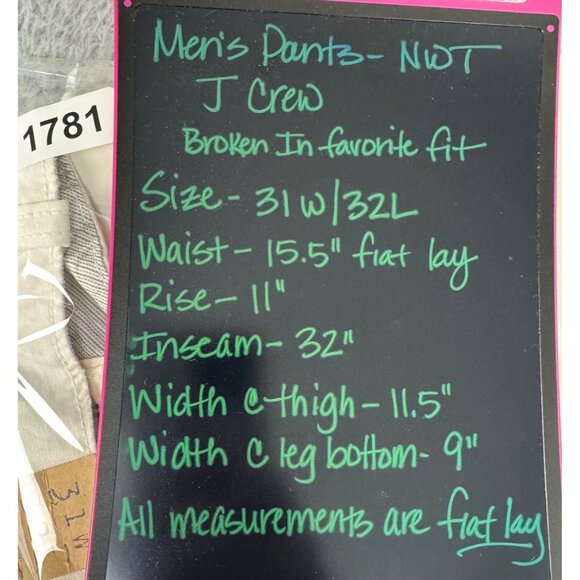 Men's Pants - NWT
J Crew
Broken In favorite fit
1781
Size - 31W/32L
Waist - 15.5" flat lay
Rise - 11"
Inseam - 32"
Width @ thigh - 11.5"
Width @ leg bottom - 9"
All measurements are flat lay
32W